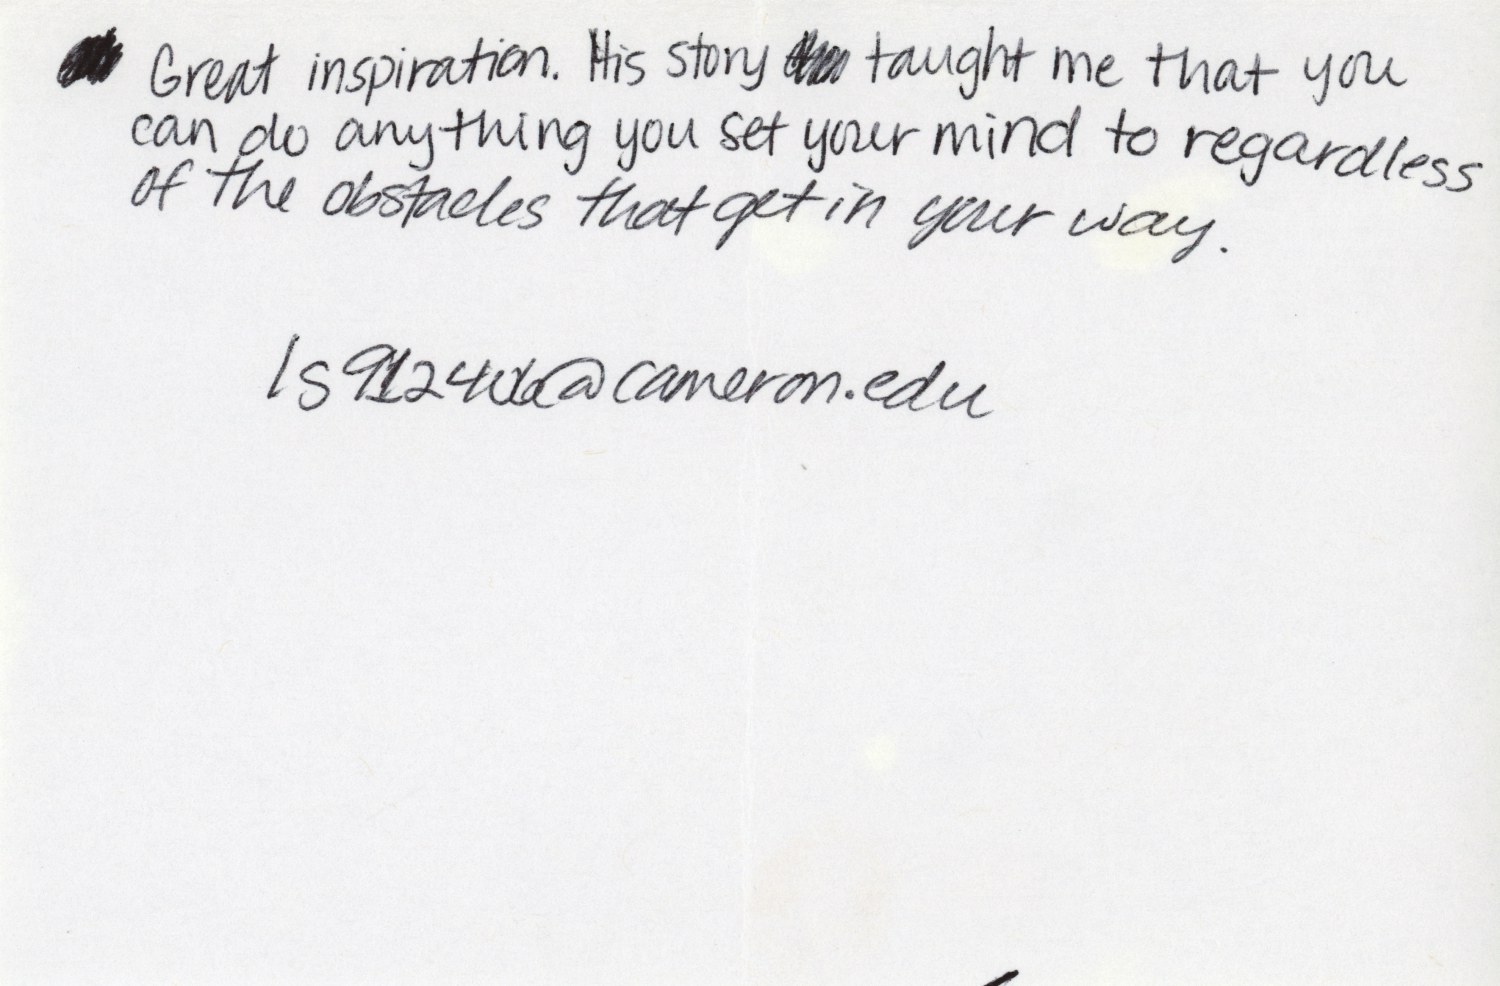 Great inspiration. His story taught me that you
can do anything you set your mind to regardless
of the obstacles that get in your way.